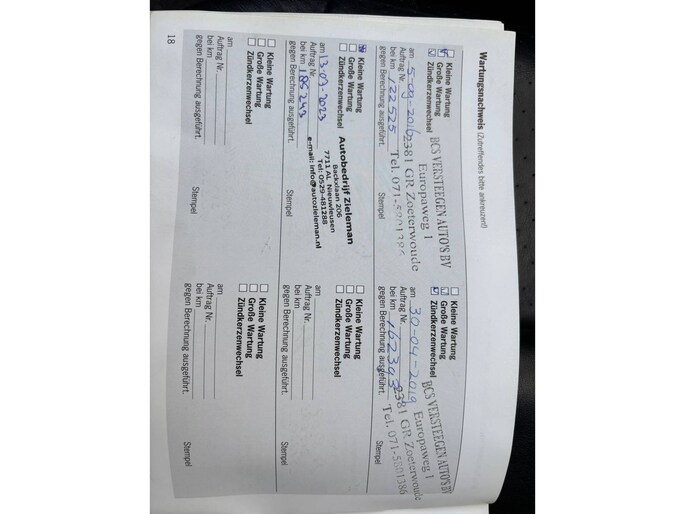 Wartungsnachweis (Zutreffendes bitte ankreuzen!)
Kleine Wartung
Große Wartung
Zündkerzenwechsel
am 5-09-2016
Auftrag Nr.
bei km 122525
gegen Berechnung ausgeführt.
Stempel
BCS VERSTEEGEN AUTO'S BV
Europaweg 1
2381 GR Zoeterwoude
Tel. 071-5801386
Kleine Wartung
Große Wartung
Zündkerzenwechsel
am 30-04-2019
Auftrag Nr.
bei km 162345
gegen Berechnung ausgeführt.
Stempel
BCS VERSTEEGEN AUTO'S BV
Europaweg 1
2381 GR Zoeterwoude
Tel. 071-5801386
Kleine Wartung
Große Wartung
Zündkerzenwechsel
am 13-03-2023
Auftrag Nr.
bei km 185243
gegen Berechnung ausgeführt.
Stempel
Autobedrijf Zieleman
Backxlaan 206
7711 AL Nieuwleusen
Tel: 0529-481288
e-mail: info@autozieleman.nl
Kleine Wartung
Große Wartung
Zündkerzenwechsel
am
Auftrag Nr.
bei km
gegen Berechnung ausgeführt.
Stempel
Kleine Wartung
Große Wartung
Zündkerzenwechsel
am
Auftrag Nr.
bei km
gegen Berechnung ausgeführt.
Stempel
Kleine Wartung
Große Wartung
Zündkerzenwechsel
am
Auftrag Nr.
bei km
gegen Berechnung ausgeführt.
Stempel
18